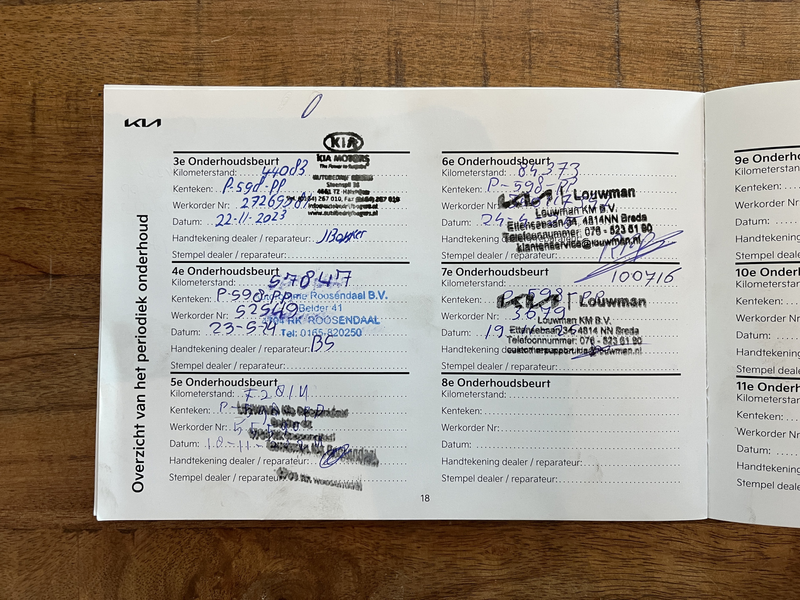 KIA
Overzicht van het periodiek onderhoud
3e Onderhoudsbeurt
Kilometerstand: 44083
Kenteken: P-598-PP
Werkorder Nr:
Datum: 22-11-2023
Handtekening dealer / reparateur:
Stempel dealer / reparateur:
KIA
KIA MOTORS
The Power to Surprise
4e Onderhoudsbeurt
Kilometerstand: 57847
Kenteken: P-598-PP
Werkorder Nr: 52549
Datum: 23-5-24
Handtekening dealer / reparateur: BS
Stempel dealer / reparateur:
Roosendaal B.V.
Belder 41
ROOSENDAAL
Tel: 0165-820250
5e Onderhoudsbeurt
Kilometerstand:
Kenteken:
Werkorder Nr:
Datum:
Handtekening dealer / reparateur:
Stempel dealer / reparateur:
6e Onderhoudsbeurt
Kilometerstand: 84373
Kenteken: P-598-PP
Werkorder Nr:
Datum:
Handtekening dealer / reparateur:
Stempel dealer / reparateur:
KIA | Louwman
Louwman KM B.V.
Ettensebaan 34, 4814NN Breda
Telefoonnummer: 076 - 523 61 90
klantenservice@louwman.nl
7e Onderhoudsbeurt
100716
Kilometerstand:
Kenteken: P-598-PP
Werkorder Nr: 3679
Datum:
Handtekening dealer / reparateur:
Stempel dealer / reparateur:
KIA | Louwman
Louwman KM B.V.
Ettensebaan 34 4814 NN Breda
Telefoonnummer: 076 - 523 61 90
8e Onderhoudsbeurt
Kilometerstand:
Kenteken:
Werkorder Nr:
Datum:
Handtekening dealer / reparateur:
Stempel dealer / reparateur:
18
9e Onderho
Kilometerstand
Kenteken:
Werkorder N
Datum:
Handtekenin
Stempel deale
10e Onderl
Kilometerstan
Kenteken:
Werkorder N
Datum:
Handtekenin
Stempel deal
11e Onderh
Kilometerstan
Kenteken:
Werkorder N
Datum:
Handtekenin
Stempel deal